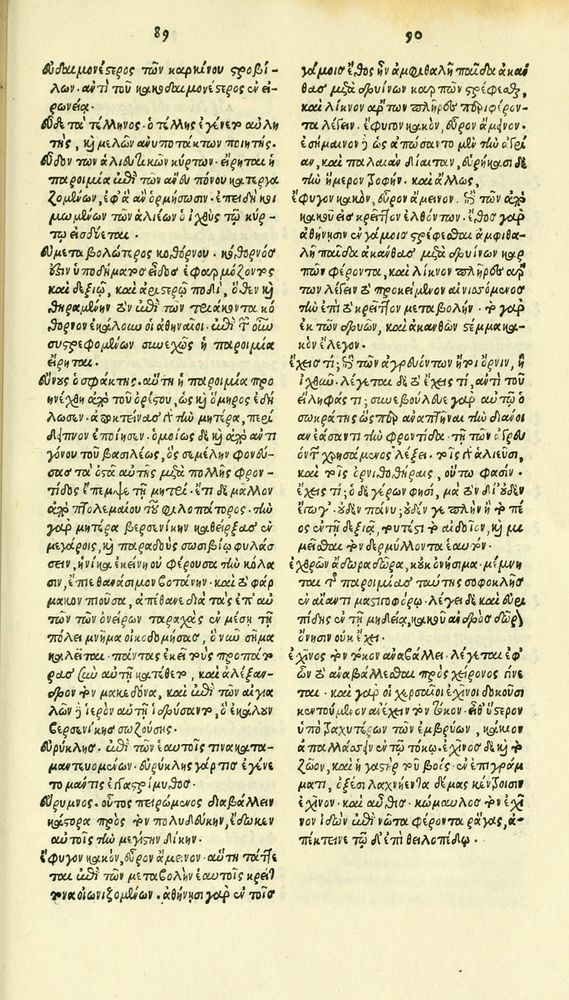 89
εὐδαιμονέστερος τῶν καρκίνου στροβί-
λων. ἀντὶ τοῦ κακοδαιμονέστερος ἐν εἰ-
ρωνεία.
οὐδὲ τὰ τίλληνος. ὁ τίλλης ἐγένετο αὐλη
τὴς, καὶ μελῶν ἀνυποτάκτων ποιητής.
εὕδοντι κύρτος αἱρεῖ
παροιμία ἐπὶ τῶν ἄνευ πόνου κατεργα
ζομένων, ἐφ' ἃ ἂν ὁρμήσωσιν. ἐπειδὴ κοι
μωμένων τῶν ἁλιέων ὁ ἰχθῦς τῷ κύρ-
τῳ εἰσδύεται.
εὐμεταβολώτερος κοθόρνου. κόθορνός
ἐστιν ὑποδήματος εἶδος ἐφαρμόζοντος
καὶ δεξιῷ, καὶ ἀριστερῷ ποδί, ὅθεν καὶ
θηραμένην τὸν ἐπὶ τῶν τριάκοντα κό
θορνον ἐκάλουν οἱ ἀθηναῖοι. ἐπὶ τῶν οὖν
συστρεφομένων συνεχῶς ἡ παροιμία
εἴρηται.
εὔνους ὁ σφάκτης. αὕτη ἡ παροιμία προ
ηνέχθη ἀπὸ τοῦ ὀρέστου, ὡς καὶ ὅμηρος ἐδή
λωσεν. ἀποκτείνας γὰρ τὴν μητέρα, περί
δειπνον ἐποίησεν. ὁμοίως δὲ καὶ ἀπὸ ἀντι
γόνου τοῦ βασιλέως, ὃς σεμέλην φονεύ-
σας τὰ ὀστᾶ αὐτῆς μετὰ πολλῆς φρον-
τίδος ἔπεμψε τῇ μητρί. ἔτι δὲ μᾶλλον
ἀπὸ πτολεμαίου τοῦ φιλοπάτορος. τὴν
γὰρ μητέρα βερενίκην καθείρξας ἐν
μεγάροις, καὶ παραδοὺς σωσιβίῳ φυλάσ
σειν, ἡνίκα ἐκείνη οὐ φέρουσα τὴν κόλα
σιν, ἔπιε θανάσιμον βοτάνην. καὶ τὸ φάρ
μακον πιοῦσα, ἀπέθανε διὰ τὰς ἐπ' αὐ
τῶν τῶν ὀνείρων ταραχὰς ἐν μέσῃ τῇ
πόλει μνῆμα οἰκοδομήσας, ὃ νῦν σῆμα
καλεῖται. πάντας ἐκεῖ τοὺς προπάτο
ρας σὺν αὐτῇ κατέθετο, καὶ ἀλέξαν-
δρον τὸν μακεδόνα, καὶ ἐπὶ τῶν αἰγια
λῶν τὸ ἱερὸν αὐτῇ ἱδρύσαντο, ὃ ἐκάλουν
βερενίκης σωζούσης.
εὐρυκλῆς. ἐπὶ τῶν ἑαυτοῖς τινα κατα-
μαντευομένων. εὐρυκλῆς γάρ τις ἐγένε
το μάντις ἐγγαστρίμυθος.
εὔρυμνος. οὗτος πειρώμενος διαβάλλειν
κάστορα πρὸς τὸν πολυδεύκην, ἔδωκεν
αὐτοῖς τὴν μεγίστην δίκην.
ἔφυγον κακὸν, εὗρον ἄμεινον. αὕτη τάττε
ται ἐπὶ τῶν μεταβολὴν ἑαυτοῖς κρείτ
τονα οἰωνιζομένων. ἀθήνησι γὰρ ἐν τοῖς
90
γάμοις ἔθος ἦν ἀμφιθαλῆ παῖδα ἀκαν
θας μετὰ δρυΐνων καρπῶν στέφεσθαι,
καὶ λίκνον ἄρτων πλῆρες περιφέρον-
τα λέγειν. ἔφυγον κακὸν, εὗρον ἄμεινον.
ἐσήμαινον γὰρ ὡς ἀπώσαντο μὲν τὴν ἀγρί
αν, καὶ παλαιὰν δίαιταν, εὑρήκασι δὲ
τὴν ἥμερον τροφήν. καὶ ἄλλως,
ἔφυγον κακὸν, εὗρον ἄμεινον. ἐπὶ τῶν ἀπὸ
κακοῦ εἰς κρεῖττον ἐλθόντων. ἔθος γὰρ
ἀθήνησιν ἐν γάμοις στρέφεσθαι ἀμφιθα-
λῆ παῖδα ἀκάνθας μετὰ δρυΐνων καρ-
πῶν φέροντα, καὶ λίκνον πλῆρος ἄρ-
των λέγειν τὸ προκείμενον αἰνισσόμενος
τὴν ἐπὶ τὸ κρεῖττον μεταβολήν. τὸ γὰρ
ἐκ τῶν δρυῶν, καὶ ἀκανθῶν στέμμα κα-
κὸν ἔλεγον.
ἔχεις τι; ἐπὶ τῶν ἀγρευόντων ἤτοι ὄρνιν, ἢ
ἰχθῦν. λέγεται δὲ τὸ ἔχεις τι, ἀντὶ τοῦ
εἴληφάς τι; συνεβούλευε γὰρ αὐτῷ ὁ
σωκράτης ὥσπερ ἀναπτῆναι τὴν διάνοι
αν ἐάσαντι τὴν φροντίδα. τῇ τῶν ἀγρευ
όντων χρησάμενος λέξει. τοῖς γὰρ ἁλιεῦσι,
καὶ τοῖς ὀρνιθοθήραις, οὕτω φασίν.
ἔχεις τι; ὁ δὲ γέρων φησὶ, μὰ τὸν δί' οὐδὲν
ἔγωγ'. οὐδὲν πάνυ; οὐδέν γε πλὴν ἢ τὸ πέ
ος ἐν τῇ δεξιᾷ, τουτέστι τὸ αἰδοῖον, καὶ μι
μεῖσθαι τὸν δερμύλλοντα ἑαυτόν.
ἐχθρῶν ἄδωρα δῶρα, κ' οὐκ ὀνήσιμα. μέμνη
ται τῆς παροιμίας ταύτης σοφοκλῆς
ἐν αἴαντι μαστιγοφόρῳ. λέγει δὲ καὶ εὐρι
πίδης ἐν τῇ μηδείᾳ, κακοῦ ἀνδρὸς δῶρα
ὄνησιν οὐκ ἔχει.
ἐχῖνος τὸν τόκον ἀναβάλλει. λέγεται ἐφ'
ὧν τὸ ἀναβάλλεσθαι πρὸς χείρονος γίνε
ται. καὶ γὰρ οἱ χερσαῖοι ἐχῖνοι δοκοῦσι
κεντούμενοι ἀνέχειν τὸν τόκον. εἶθ' ὕστερον
ὑπὸ τραχυτέρων τῶν ἐμβρύων, κάκιον
ἀπαλλάσσειν ἐν τῷ τόκῳ. ἐχῖνος δὲ καὶ τὸ
ζῶον, καὶ ἡ γαστὴρ τοῦ βοὸς. ἐν ἐπιγράμ
ματι, ὀξέσι λαχνήεντα δέμας κέντροισιν
ἐχῖνον. καὶ αὖθις. κώμαυλος τὸν ἐχῖ
νον ἰδὼν ἐπὶ νῶτα φέροντα ῥᾶγας, ἀ-
πέκτεινε τῷδ' ἐπὶ θειλοπέδῳ.